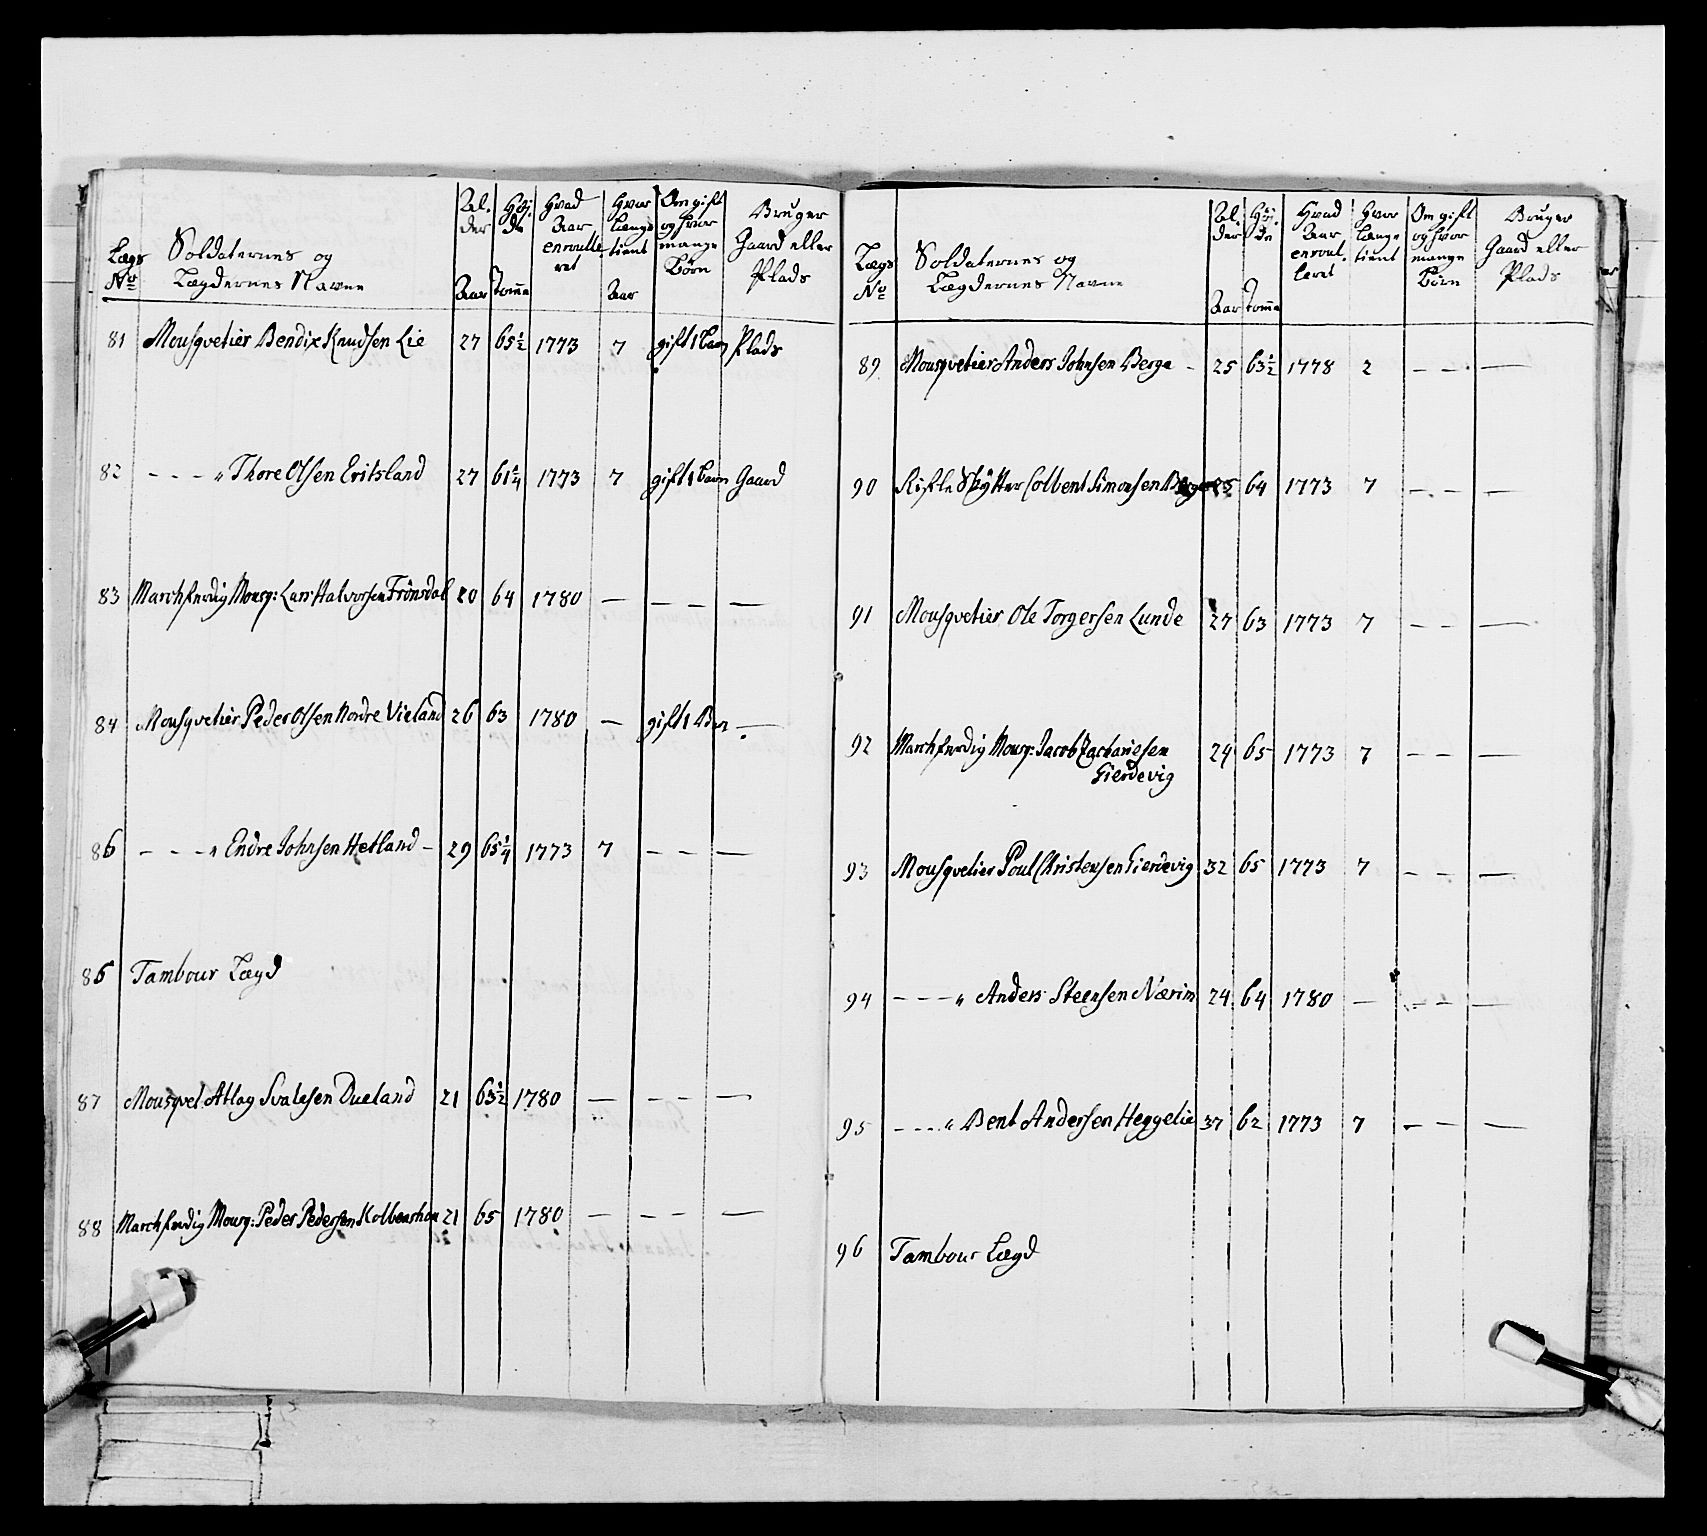 Lægs No
Soldaternes og
Lægdernes Navne
Al-
der
Aar
Høi-
de
Tomme
Hvad
Aar
enroulle
ret
Hvor
længe
tient
Aar
Om gift
og hvor
mange
Børn
Bruger
Gaard eller
Plads
81 Mousqvetier Bendix Knudsen Lie 27 65½ 1773 7 gift 1 Barn Plads
82 - - - " Thore Olsen Eritsland 27 61¼ 1773 7 gift 1 Barn Gaard
83 Marchferdig Mousq: Lars Halvorsen Frönsdal 20 64 1780 — — — —
84 Mousqvetier Peder Olsen Nordre Vieland 26 63 1780 — gift 1 Bar —
86 - - - " Endre Johnsen Hetland - 29 65¼ 1773 7 — — —
86 Tambour Lægd
87 Mousqvet: Atlag Svalesen Dueland 21 63½ 1780 — — — —
88 Marchferdig Mousq: Peder Pedersen 21 65 1780 — — — —
Lægs
No
Soldaternes og
Lægdernes Navne
Al-
der
Aar
Høi-
de
Tomme
Hvad
Aar
enroul-
leret
Hvor
længe
tient
Om gift
og hvor
mange
Børn
Bruger
Gaard eller
Plads
89 Mousqvetier Anders Johnsen Berge - 25 63½ 1778 2 — — —
90 Rifle Skytter Colbent Simonsen 25 64 1773 7 — — —
91 Mousqvetier Ole Torgersen Lunde 27 63 1773 7 — — —
92 Marchferdig Mousq: Jacob Zachariesen 24 65 1773 7 — — —
Gierdevig
93 Mousqvetier Poul Christensen Gierdevig 32 65 1773 7 — — —
94 - - - " Anders Steensen Nærim 24 64 1780 — — — —
95 - - - " Bent Andersen Heggelie 37 62 1773 7 — — —
96 Tambour Lægd